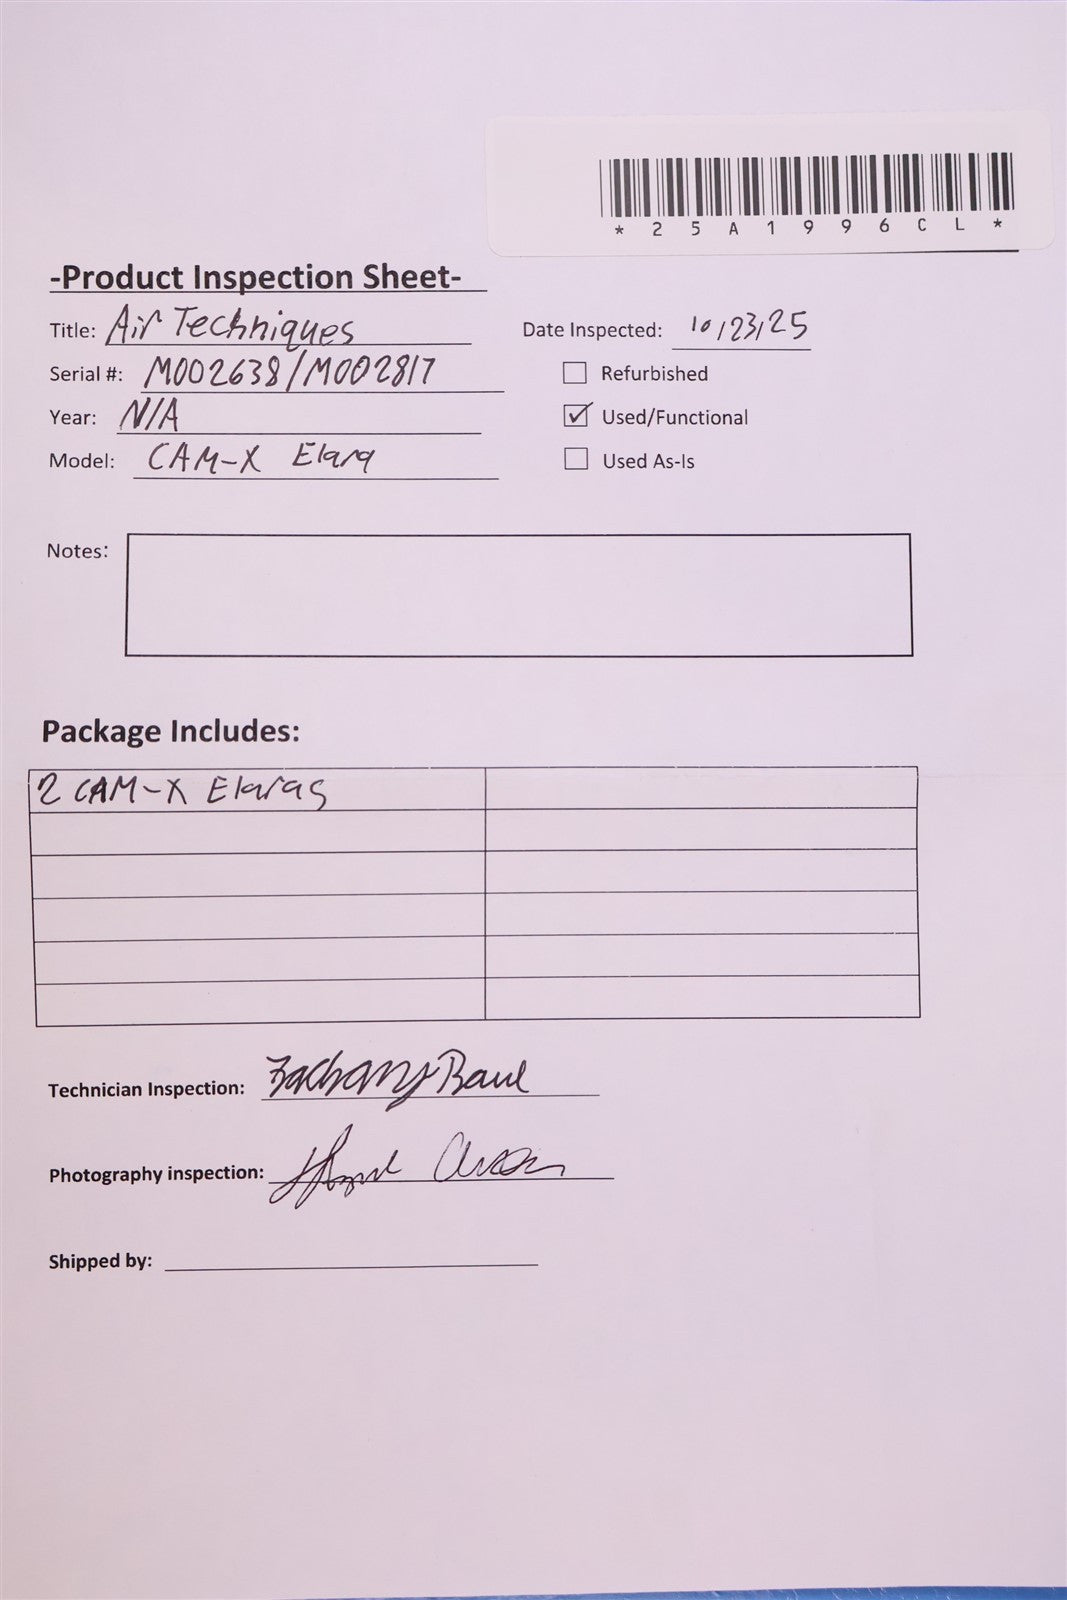 *25A1996CL*
-Product Inspection Sheet-
Title: Air Techniques
Date Inspected: 10/23/25
Serial #: M002638/M002817
Refurbished
Year: N/A
Used/Functional
Model: CAM-X Elara
Used As-Is
Notes:
Package Includes:
2 CAM-X Elaras
Technician Inspection: Zachary
Photography inspection:
Shipped by: